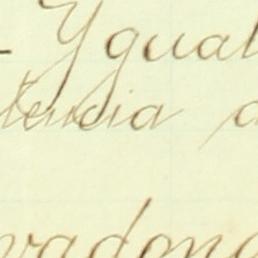 - Ygual
tencia
vadong